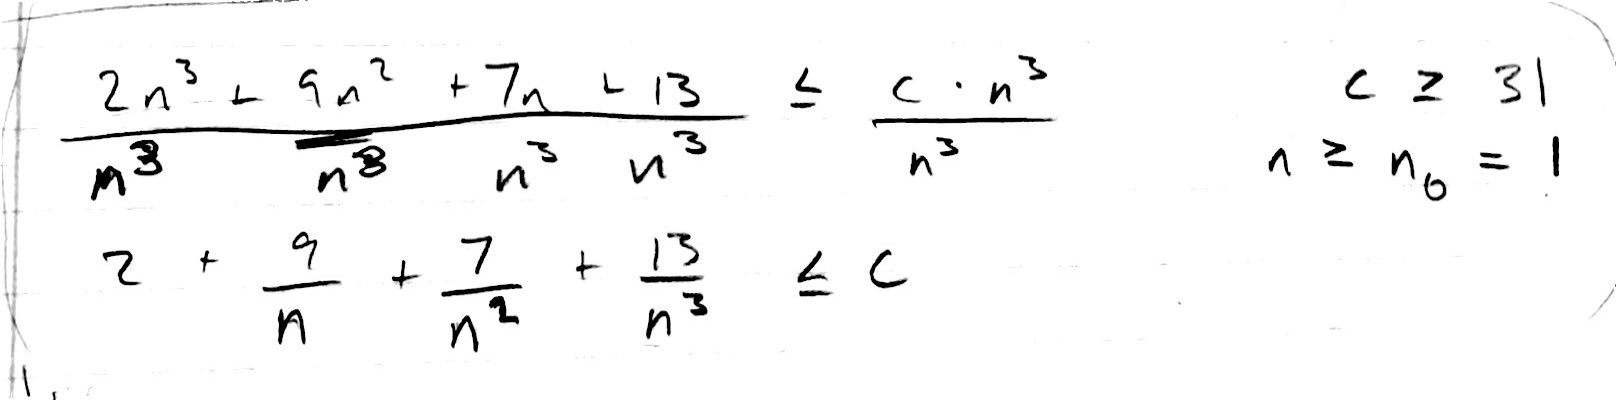 2n³ + 9n² + 7n + 13 ≤ c · n³ c ≥ 31
n³ n³ n³ n³ n³ n ≥ n₀ = 1
2 + 9/n + 7/n² + 13/n³ ≤ c
1.